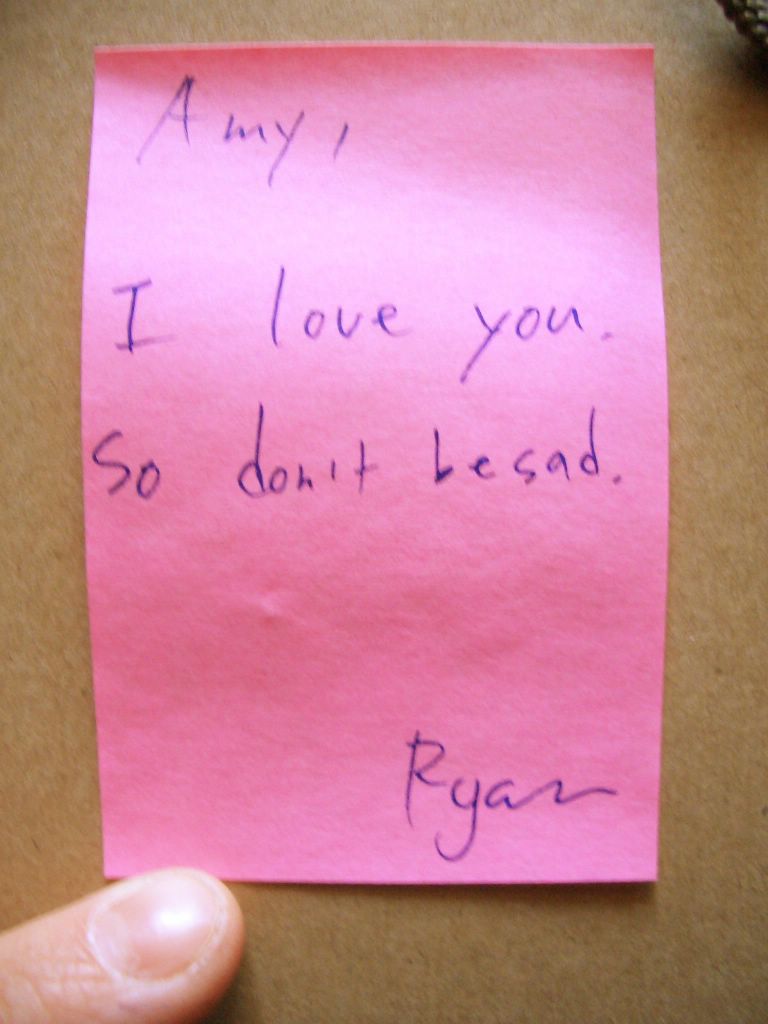 Amy,
I love you.
So don't be sad.
Ryan